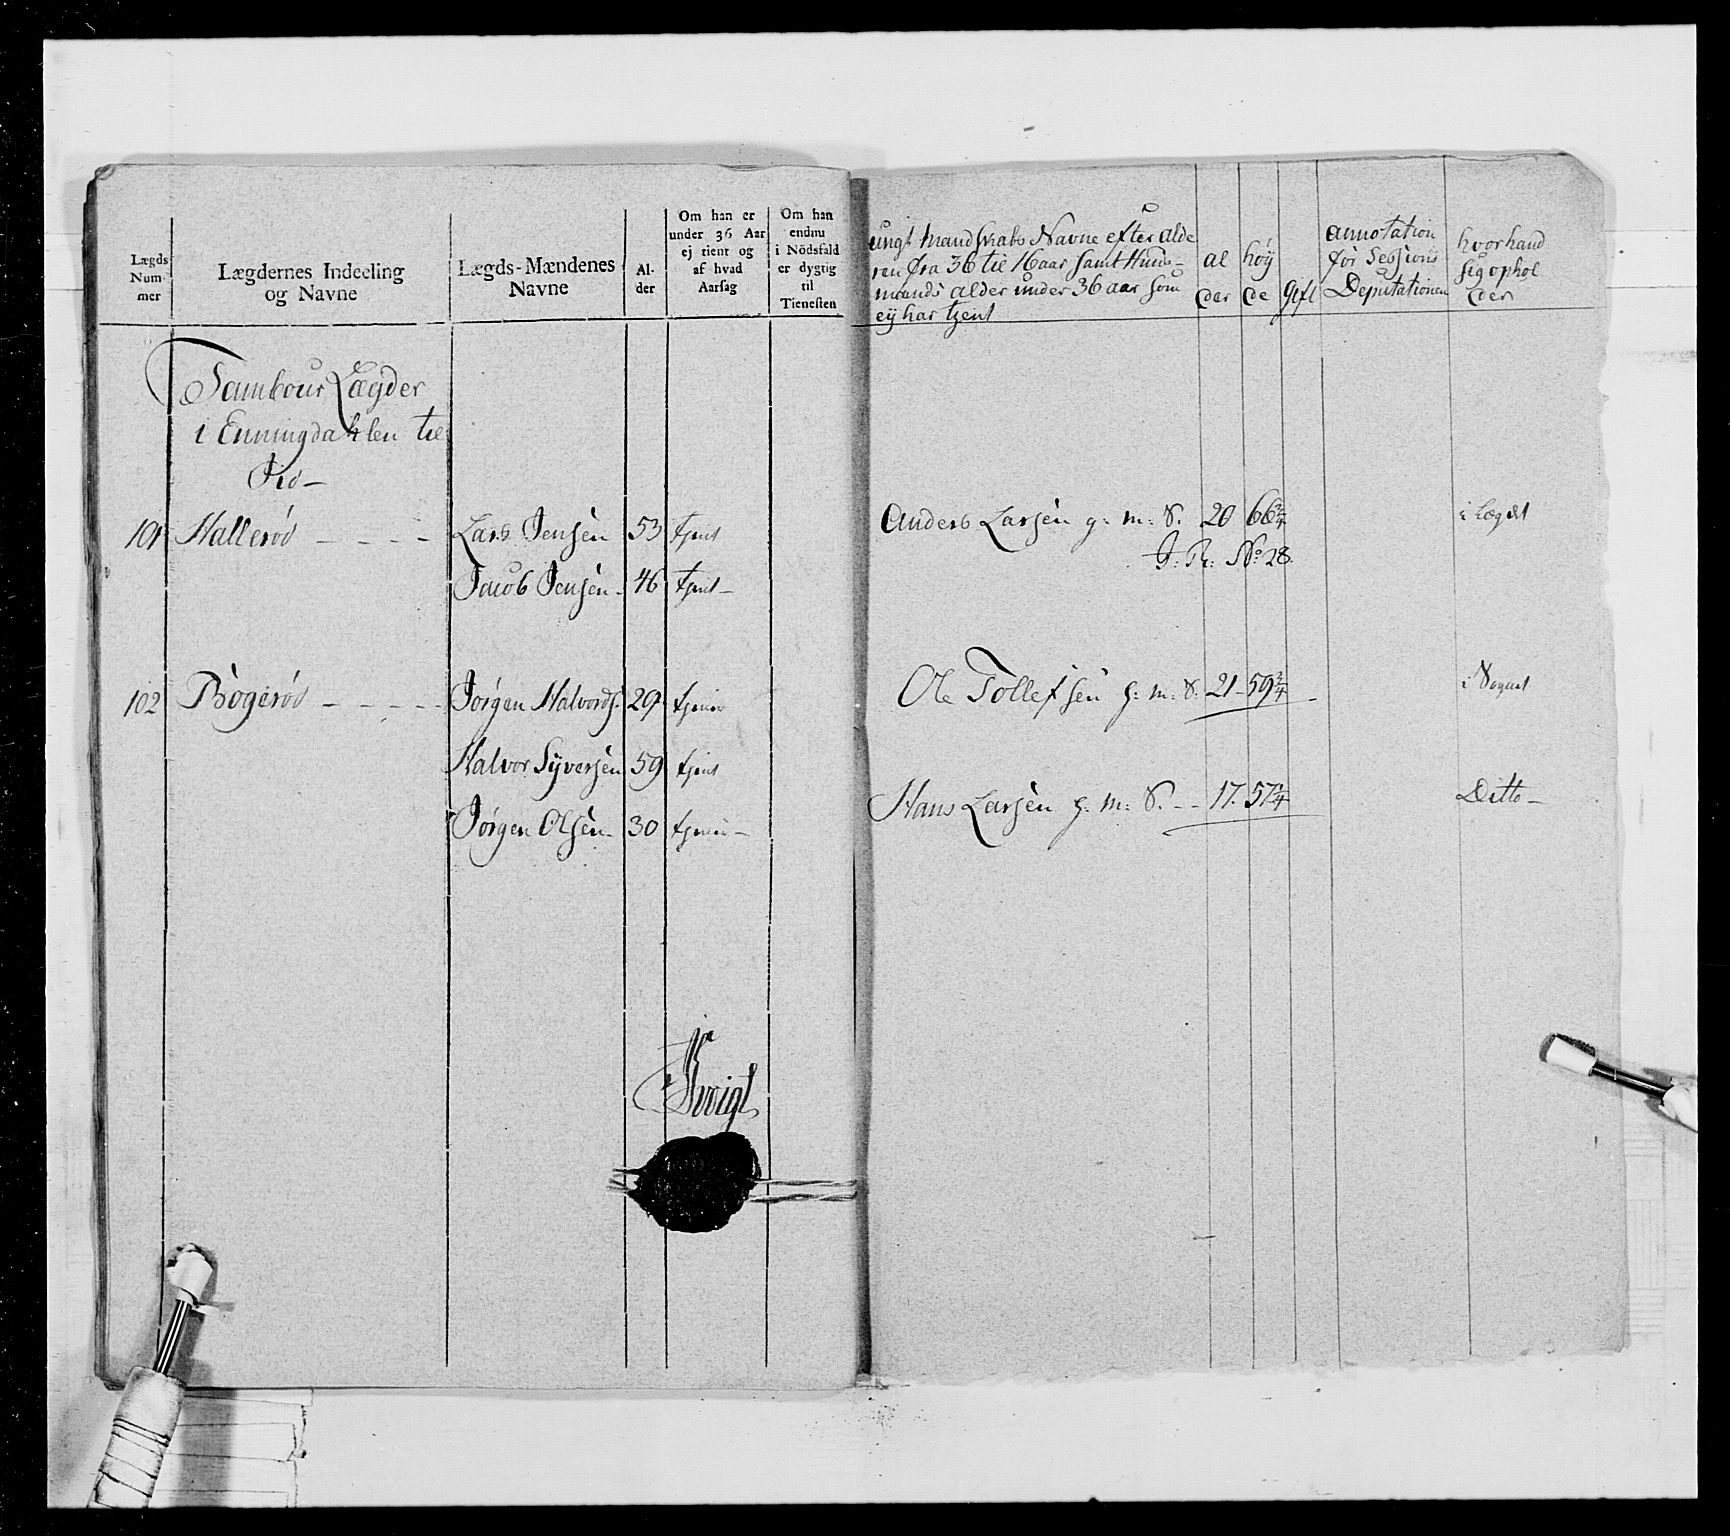 Lægds
Num-
mer
Lægdernes Indeeling
og Navne
Lægds-Mændenes
Navne
Al-
der
Om han er
under 36 Aar
ej tient og
af hvad
Aarsag
Om han
endnu
i Nödsfald
er dygtig
til
Tienesten
Tambour Lægder
i Enningdahlen til
101 Hallerød - - - - Lars Jensen 53 tjent
Jacob Jensen - 46 tjent -
102 Bøgerød - - - - - Jørgen Halvords. 29 tjener
Halvor Syversen 59 tjent
Jørgen Olsen - 30 tjener -
ungt Mandskabs Navne efter alde
ren fra 36 til 16 aar samt Huus-
mands alder under 36 aar som
eÿ har tjent
al
der
höÿ
de
gift
annotation
for Sessions
Deputationen
hvor hand
sig ophol
der
Anders Larsen g: m: S. 20 66 3/4 i Lægdet
No 28.
Ole Tollefsen g: m: S: 21 - 59 3/4 - i Sognet
Hans Larsen g: m: S. - - 17. 57 1/4 Ditto -